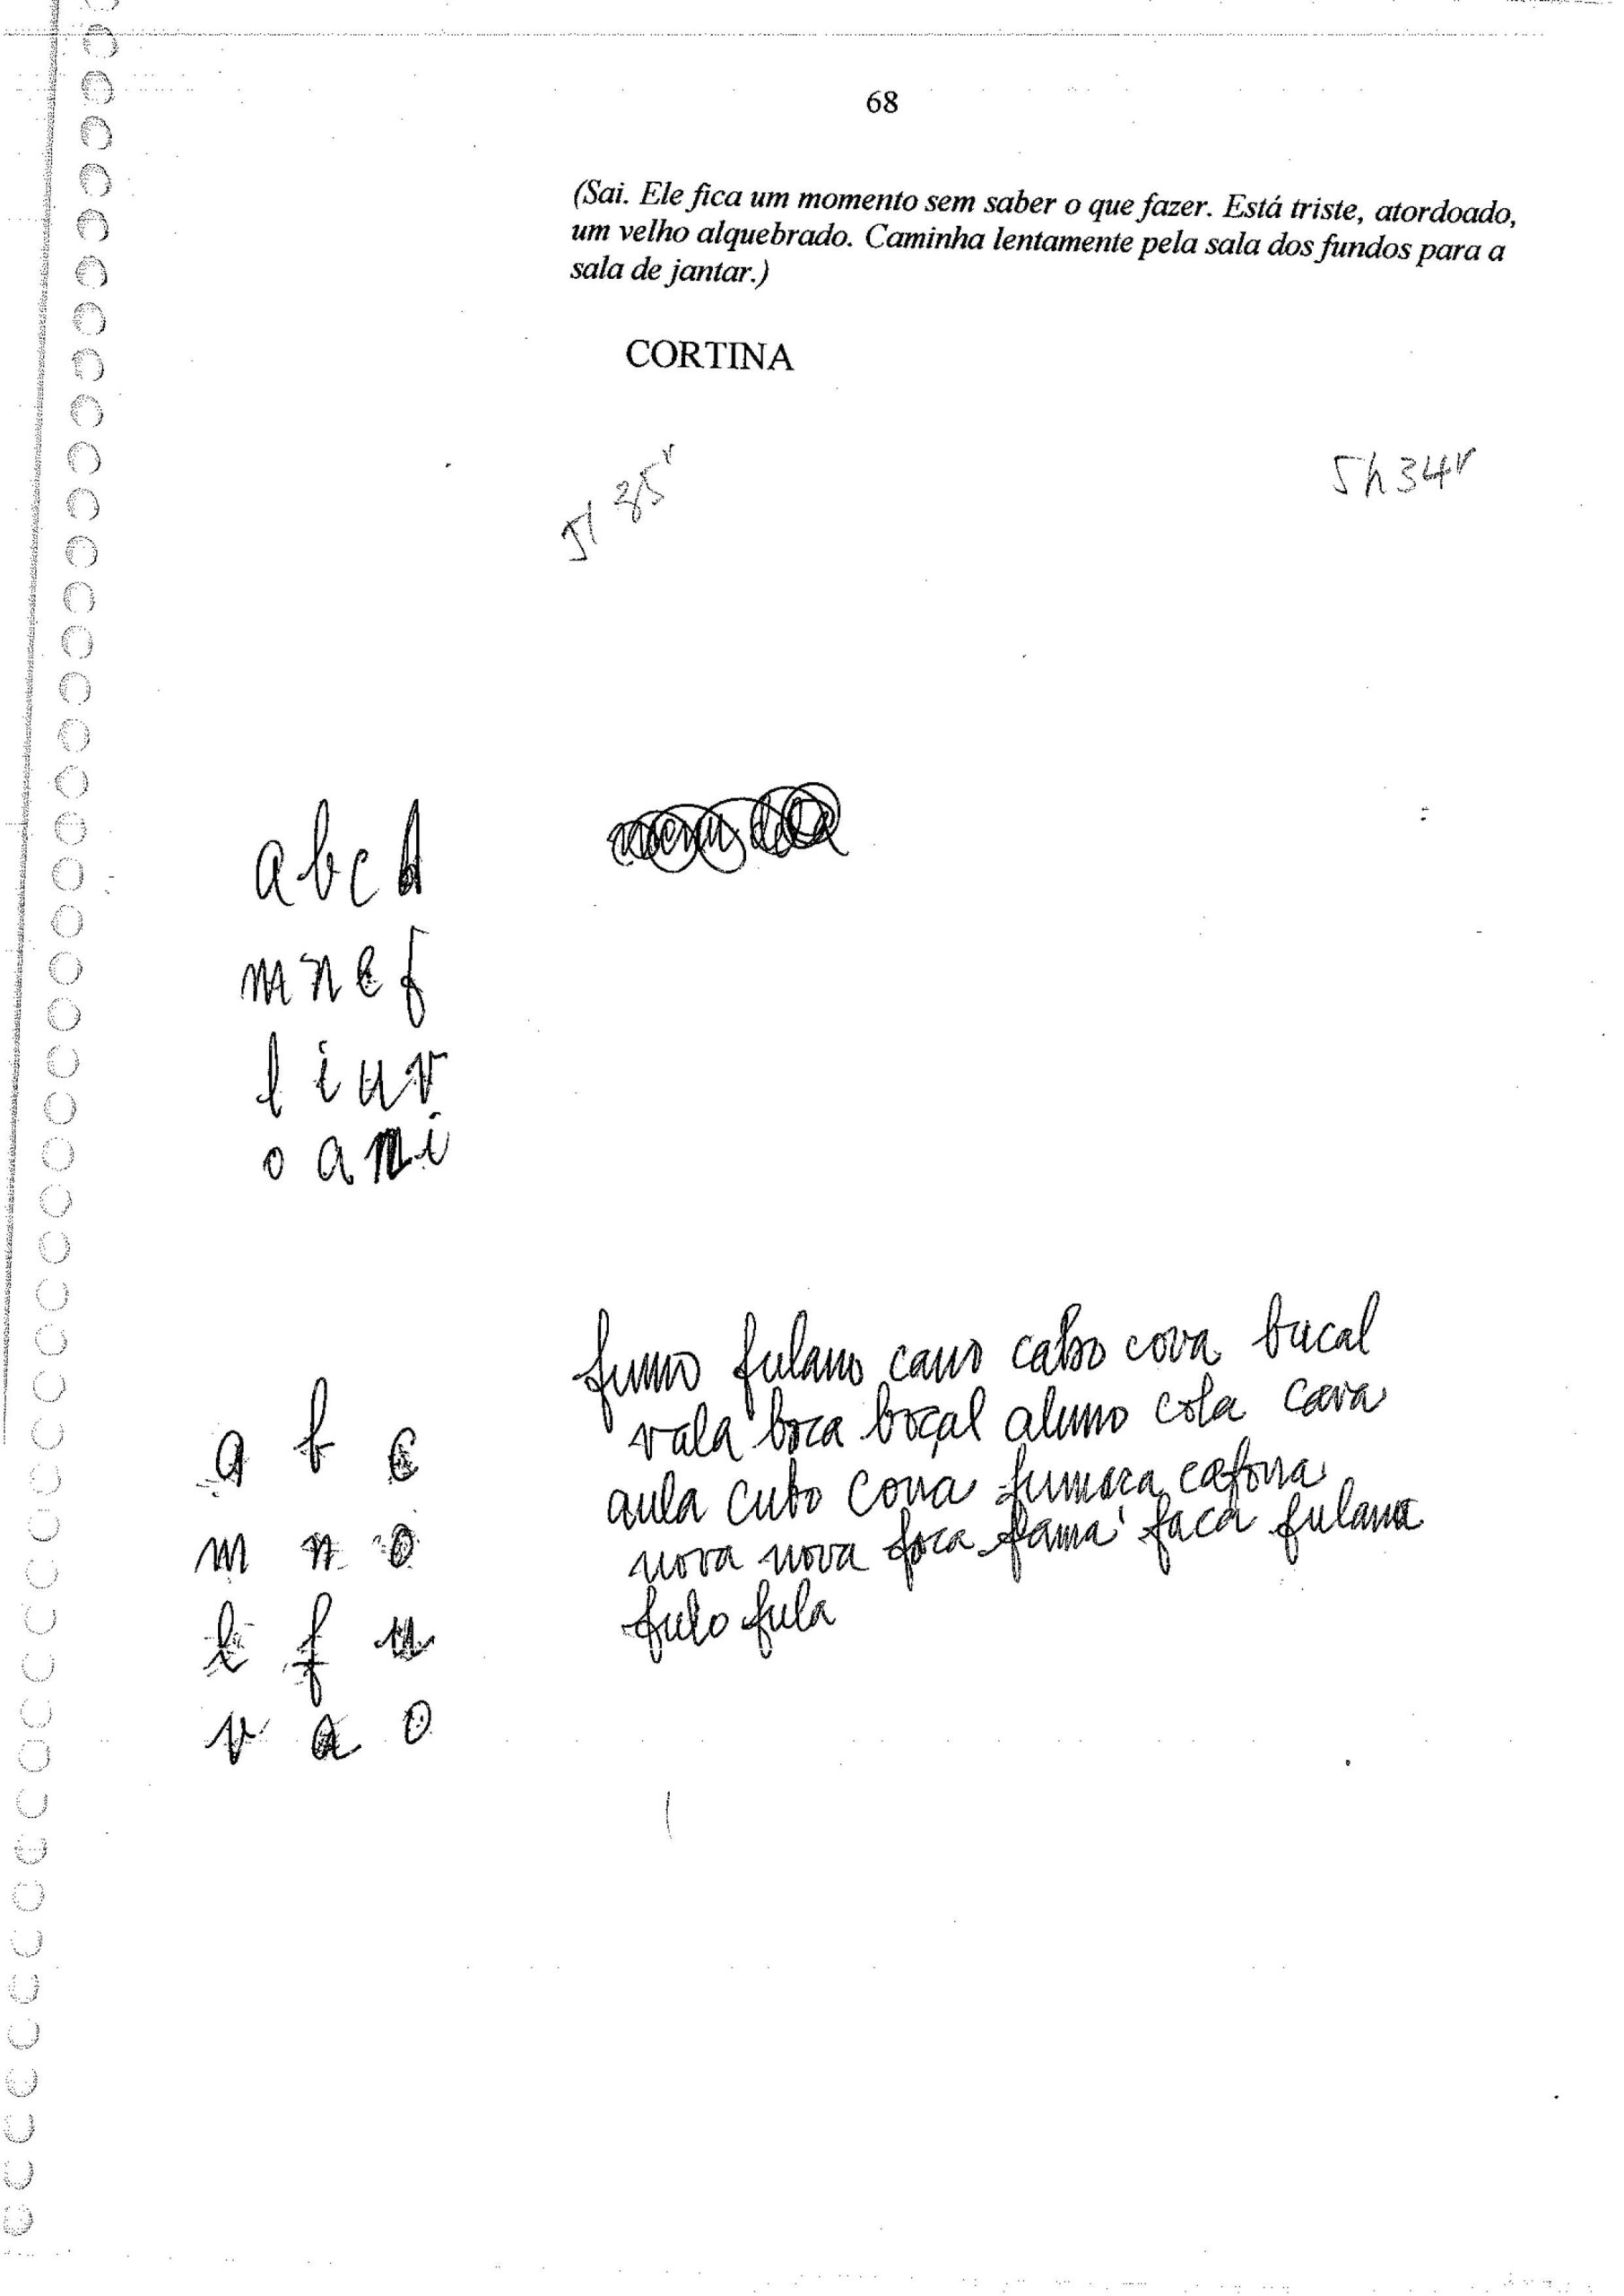 68
(Sai. Ele fica um momento sem saber o que fazer. Está triste, atordoado,
um velho alquebrado. Caminha lentamente pela sala dos fundos para a
sala de jantar.)
CORTINA
5h34
a b c d
m n e f
l i u v
o a m i
fumo fulano cano cabo cova bucal
vala boca boçal aluno cola cava
aula cubo cova fumaca cafona
nova nova foca fama faca fulana
fulo fula
a b c
m n o
l f u
v a o